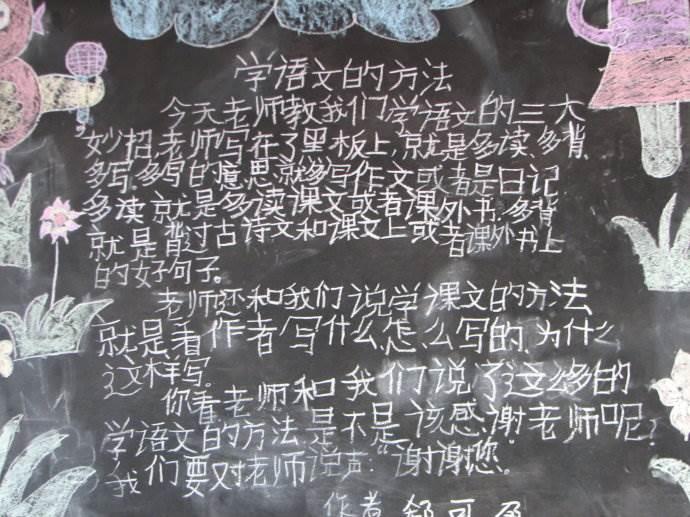 学语文的方法
今天老师教我们学语文的三大
妙招,老师写在了黑板上,就是多读、多背、
多写,多写的意思就多写作文或者是日记,
多读就是多读课文或者课外书,多背
就是背过古诗文和课文上或者课外书上
的好句子。
老师还和我们说学课文的方法,
就是看作者写什么,怎么写的,为什么
这样写。
你看老师和我们说了这多的
学语文的方法,是不是该感谢老师呢?
我们要对老师说声:“谢谢您。
作者